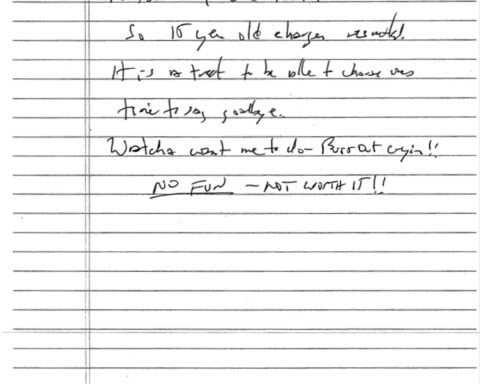 So 15 year old changes
It is a treat to be able to choose
time to say goodbye.
Watcha want me to do - Burst out cryin!!
NO FUN - NOT WORTH IT!!